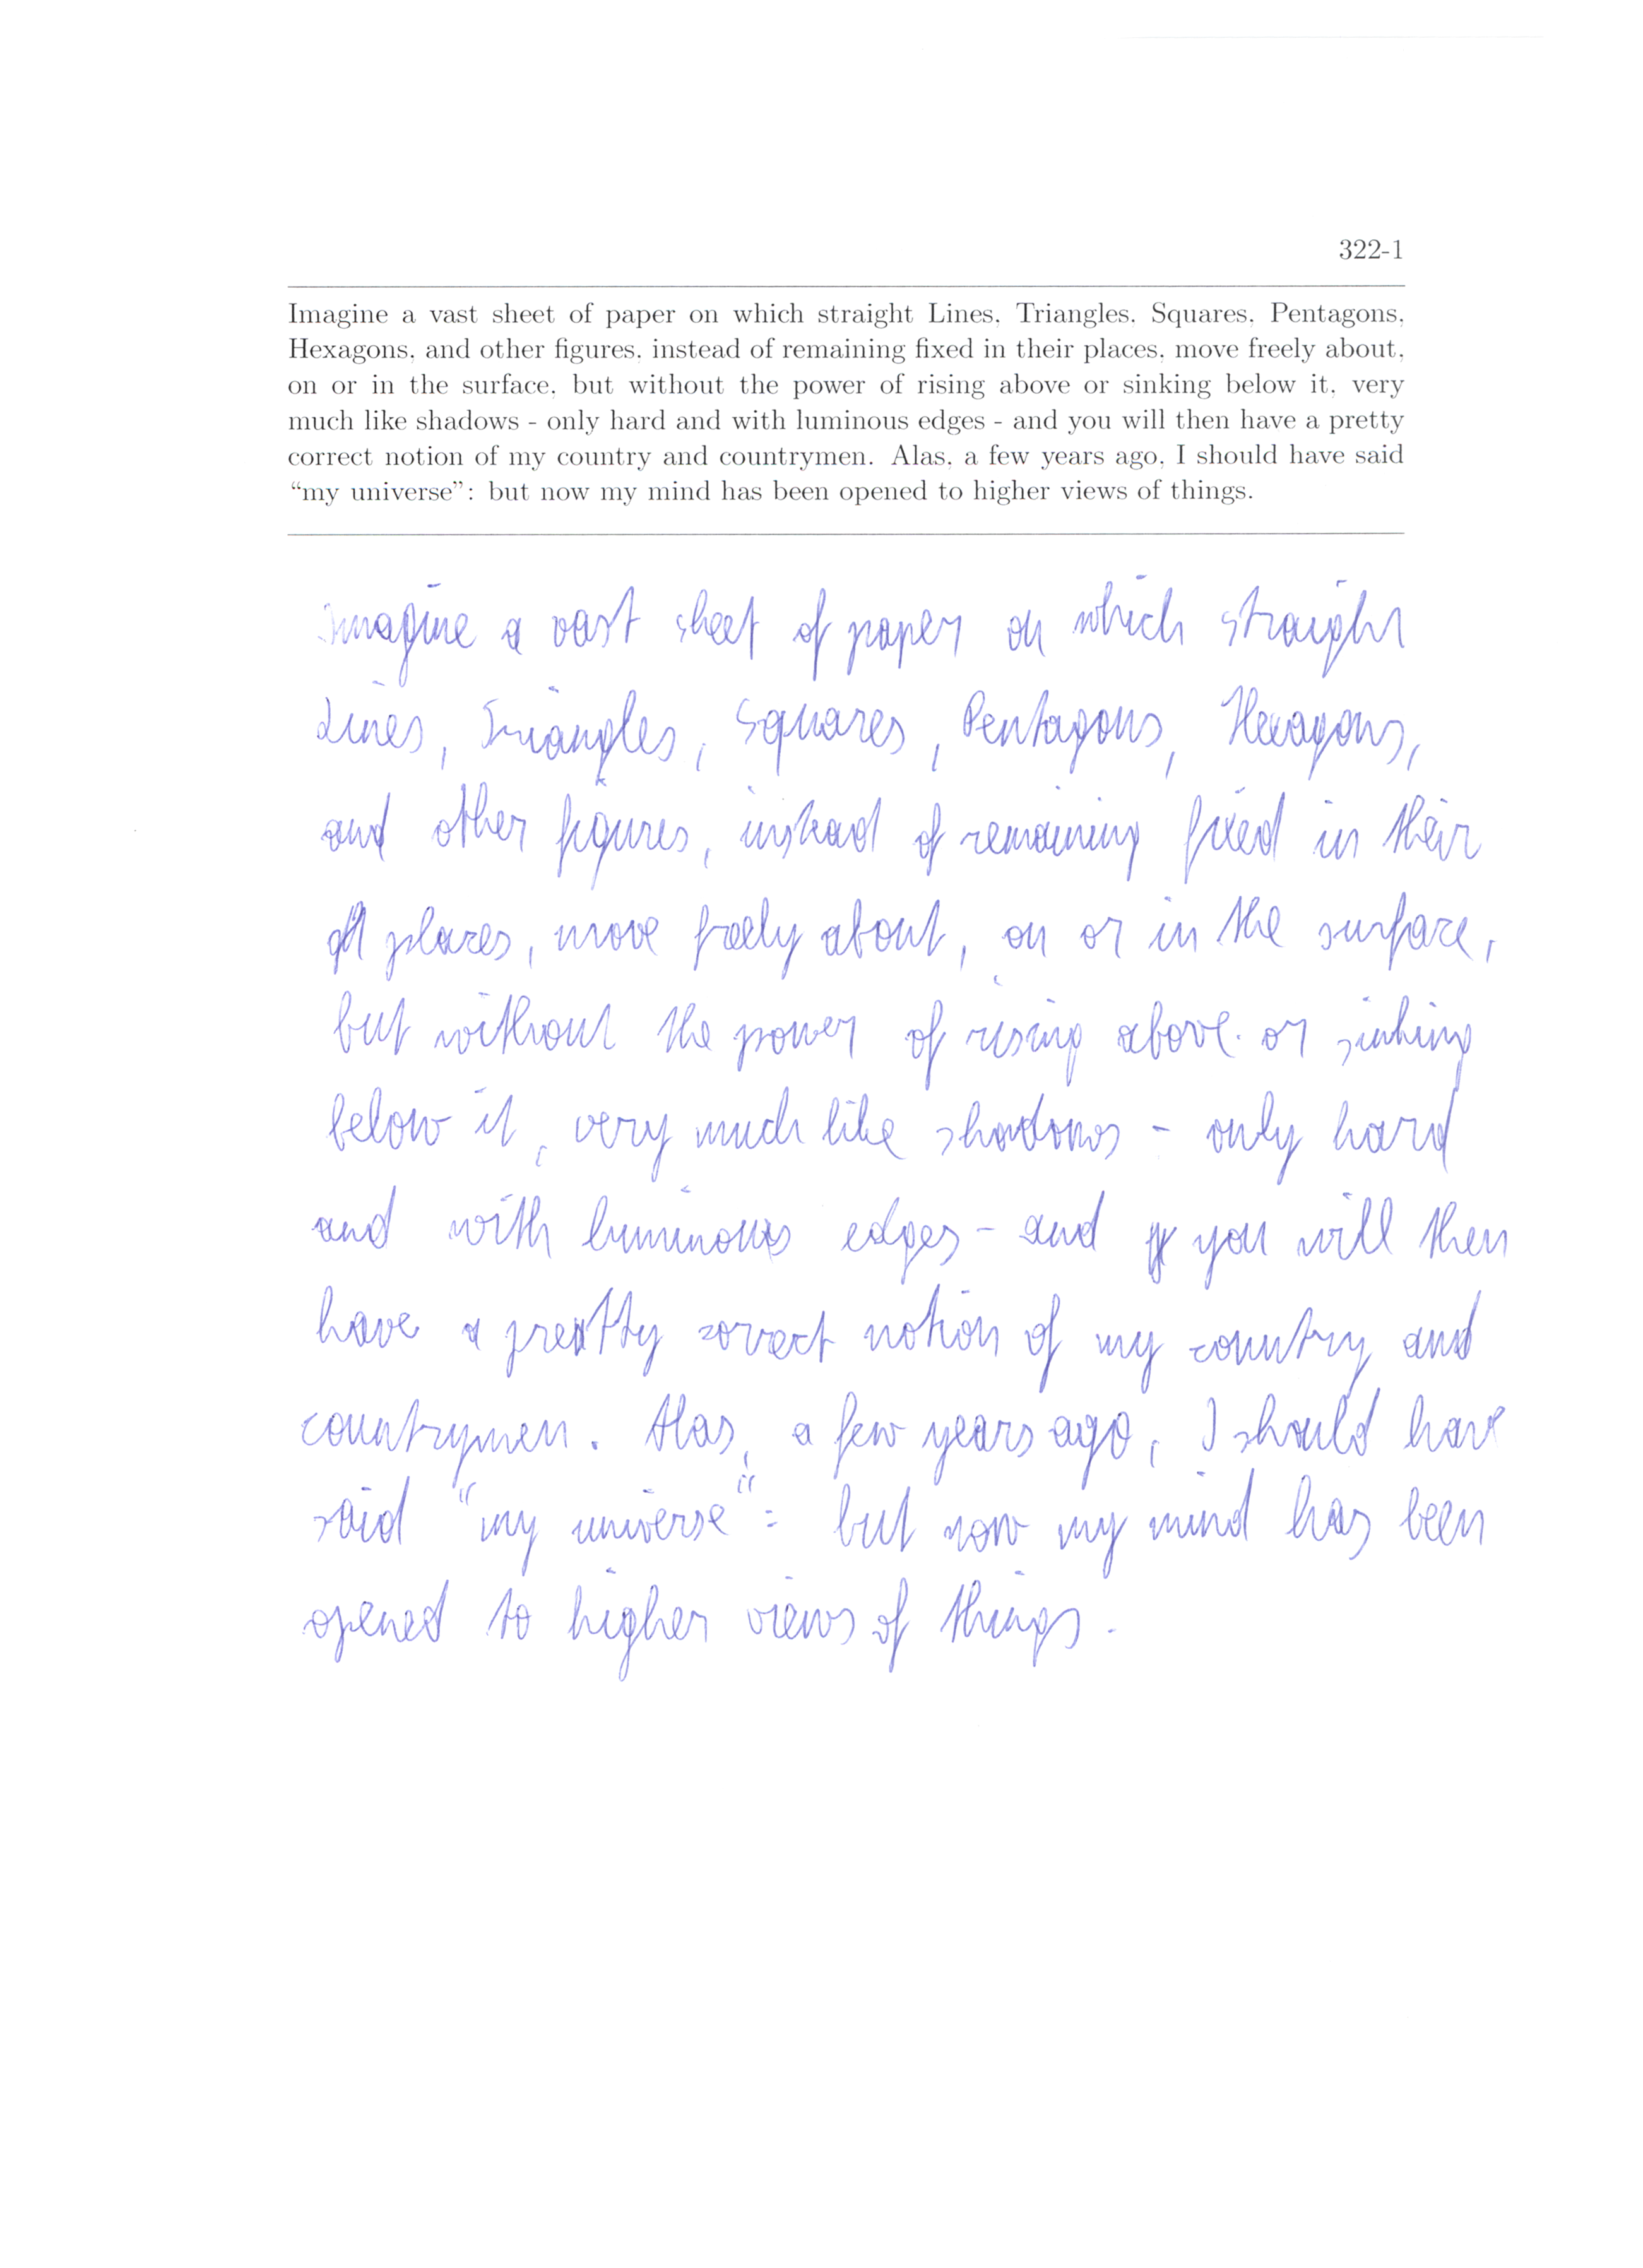 322-1
Imagine a vast sheet of paper on which straight Lines, Triangles, Squares, Pentagons,
Hexagons, and other figures, instead of remaining fixed in their places, move freely about,
on or in the surface, but without the power of rising above or sinking below it, very
much like shadows - only hard and with luminous edges - and you will then have a pretty
correct notion of my country and countrymen. Alas, a few years ago, I should have said
“my universe”: but now my mind has been opened to higher views of things.
Imagine a vast sheet of paper on which straight
Lines, Triangles, Squares, Pentagons, Hexagons,
and other figures, instead of remaining fixed in their
places, move freely about, on or in the surface,
but without the power of rising above or sinking
below it, very much like shadows - only hard
and with luminous edges - and you will then
have a pretty correct notion of my country and
countrymen. Alas, a few years ago, I should have
said "my universe": but now my mind has been
opened to higher views of things.